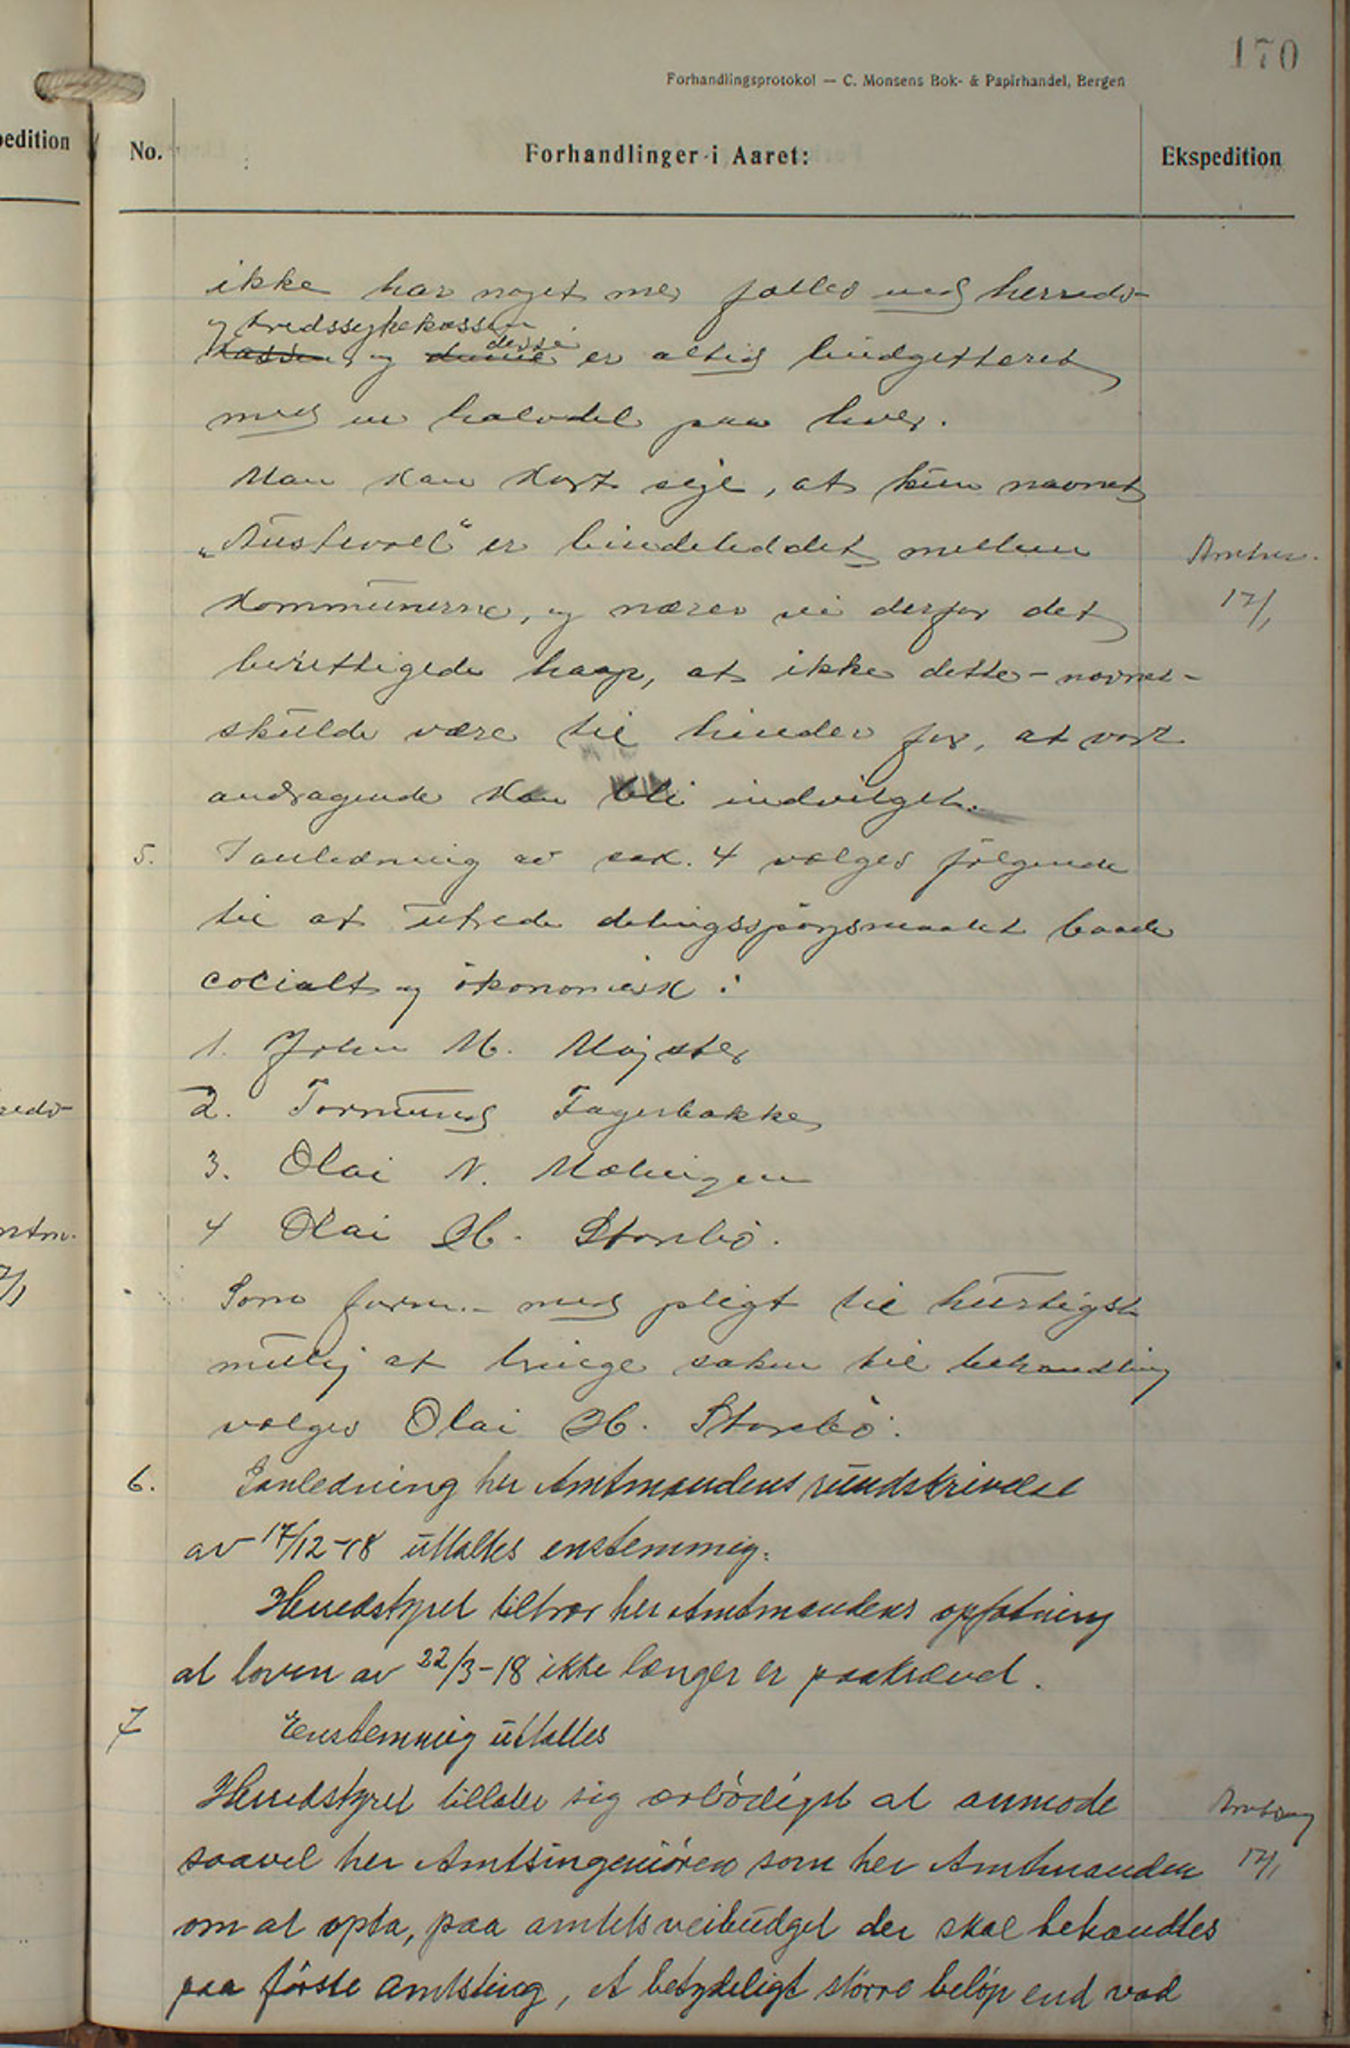 170
Forhandlingsprotokol — C. Monsens Bok- & Papirhandel, Bergen
pedition
No.
Forhandlinger i Aaret:
Ekspedition
ikke har noget mer fælles med herreds-
og kredssykekassen
kassen og denne disse er altid budgetteret
med en halvdel paa hver.
Man kan kort sige, at kun navnet
„Austevoll" er bindeleddet mellem
kommunerne, og nærer vi derfor det
17/1
berettigede haap, at ikke dette - navnet -
skulde være til hinder for, at vort
andragende kan bli indvilget.
5. I anledning av sak. 4 vælges følgende
til at utrede delingsspørgsmaalet baade
socialt og økonomisk:
1. John M. Møgster
2. Tormund Fagerbakke
3. Olai N. Mælingen
4 Olai H. Storebø.
Som form. - med pligt til hurtigst
mulig at bringe saken til behandling
vælges Olai H. Storebø.
6. I anledning her Amtmandens rundskrivelse
av 17/12-18 uttaltes enstemmig:
Herredstyret tiltrær her Amtmandens opfatning
at loven av 22/3-18 ikke længer er paakrævd.
7 Enstemmig uttaltes
Herredstyret tillater sig ærbødigst at anmode
saavel her Amtsingeniøren som her Amtmanden
17/1
om at opta, paa amtets veibudget der skal behandles
paa første amtsting, et betydeligt større beløp end vad